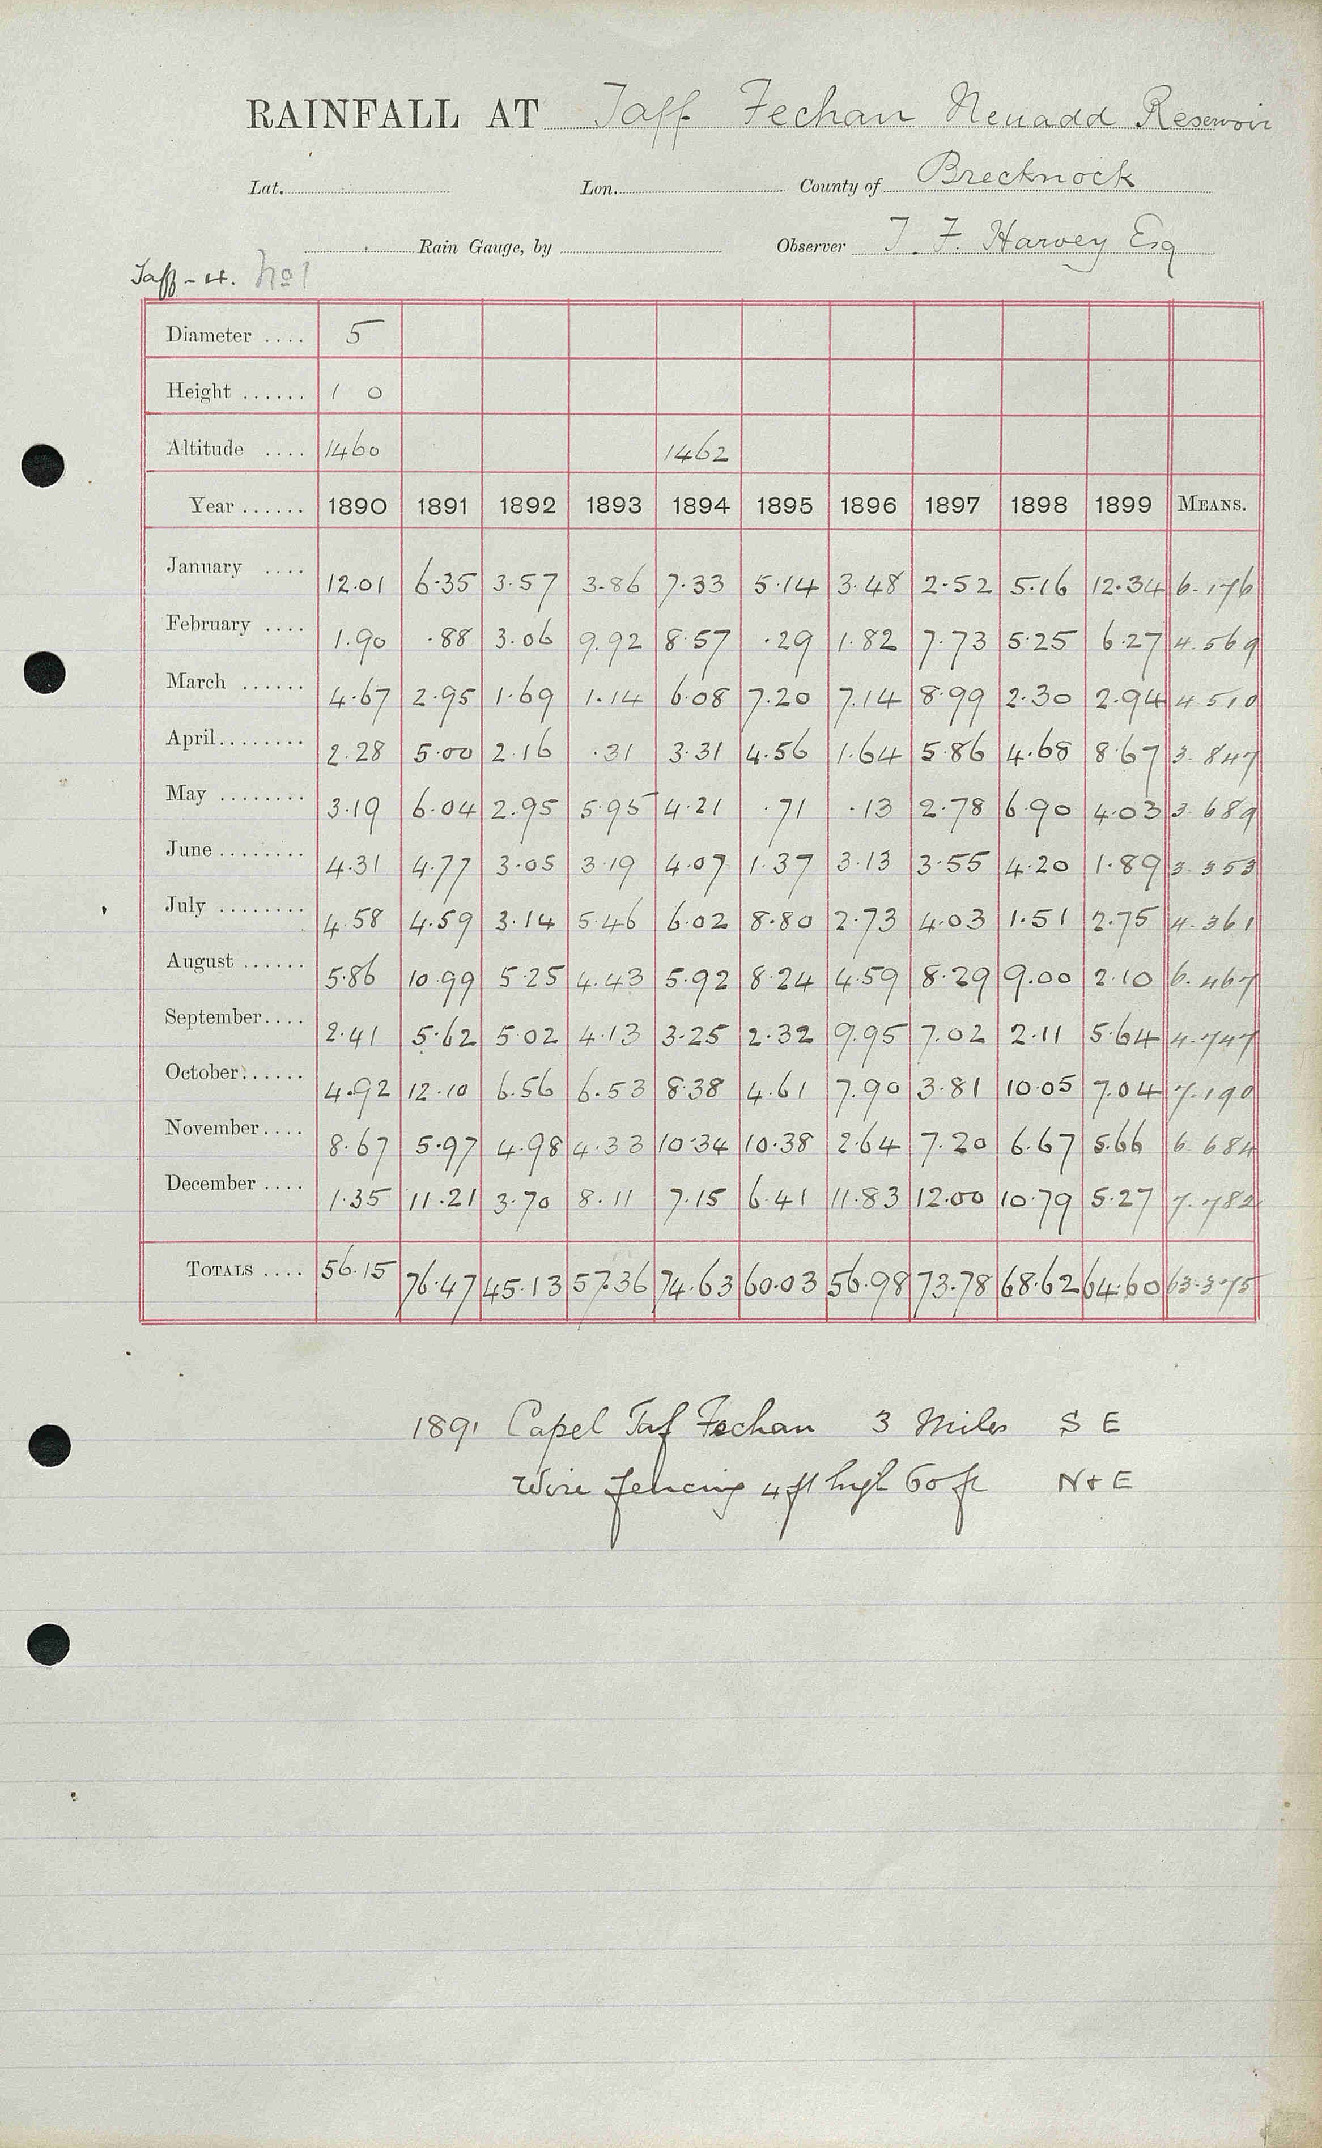 RAINFALL AT Taff Fechan Neuadd Reservoir
Lat. Lon. County of Brecknock
Rain Gauge, by Observer T. F. Harvey Esq
Taff - 4. No 1
Diameter .... 5
Height ...... 1 0
Altitude .... 1460 1462
Year ...... 1890 1891 1892 1893 1894 1895 1896 1897 1898 1899 MEANS.
January .... 12.01 6.35 3.57 3.86 7.33 5.14 3.48 2.52 5.16 12.34 6.176
February .... 1.90 .88 3.06 9.92 8.57 .29 1.82 7.73 5.25 6.27 4.569
March ...... 4.67 2.95 1.69 1.14 6.08 7.20 7.14 8.99 2.30 2.94 4.510
April........ 2.28 5.00 2.16 .31 3.31 4.56 1.64 5.86 4.68 8.67 3.847
May ........ 3.19 6.04 2.95 5.95 4.21 .71 .13 2.78 6.90 4.03 3.689
June........ 4.31 4.77 3.05 3.19 4.07 1.37 3.13 3.55 4.20 1.89 3.353
July ........ 4.58 4.59 3.14 5.46 6.02 8.80 2.73 4.03 1.51 2.75 4.361
August ...... 5.86 10.99 5.25 4.43 5.92 8.24 4.59 8.29 9.00 2.10 6.467
September.... 2.41 5.62 5.02 4.13 3.25 2.32 9.95 7.02 2.11 5.64 4.747
October...... 4.92 12.10 6.56 6.53 8.38 4.61 7.90 3.81 10.05 7.04 7.190
November.... 8.67 5.97 4.98 4.33 10.34 10.38 2.64 7.20 6.67 5.66 6.684
December .... 1.35 11.21 3.70 8.11 7.15 6.41 11.83 12.00 10.79 5.27 7.782
TOTALS .... 56.15 76.47 45.13 57.36 74.63 60.03 56.98 73.78 68.62 64.60 63.375
1891 Capel Taf Fechan 3 Miles S E
Wire fencing 4 ft high 60 ft N & E